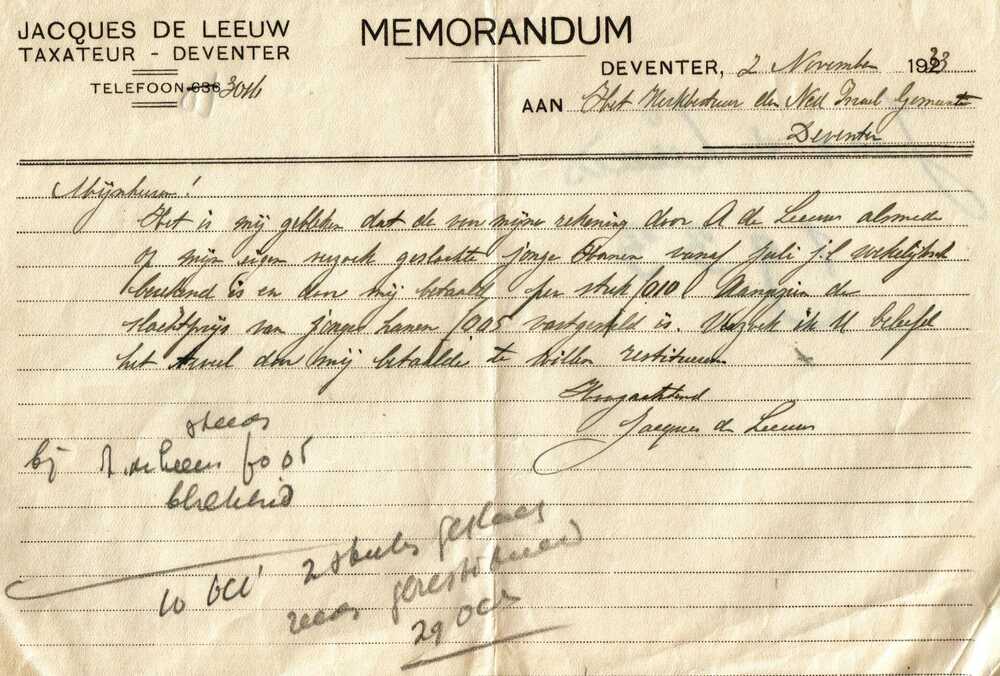 JACQUES DE LEEUW
TAXATEUR - DEVENTER
TELEFOON 636 3046
MEMORANDUM
DEVENTER, 2 November 1933
AAN Het Kerkbestuur der Ned Israel Gemeente
Deventer
Mijnheeren!
Het is mij gebleken dat de voor mijne rekening door A de Leeuw alsmede
op mijn eigen verzoek geslachte jonge Hanen vanaf Juli j.l. wekelijksch
berekend is en door mij betaald per stuk f 010 Aangezien de
slachtprijs van jonge hanen f 005 vastgesteld is. Verzoek ik U beleefd
het teveel door mij betaalde te willen restitueeren
Hoogachtend
Jacques de Leeuw
steeds
bij A. de Leeuw f 0 05
berekend
10 Oct 2 stuks geslacht
reeds gerestitueerd
29 Oct